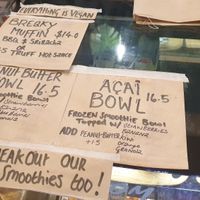 EVERYTHING IS VEGAN
BREQKY
MUFFIN $14.0
BBQ & SRIRACHA
TRUFF HOT SAUCE
NUT BUTTER
BOWL 16.5
Smoothie Bowl
AÇAÍ
BOWL 16.5
FROZEN SMOOTHIE BOWL
Topped w/
BANANA
GRANOLA
ADD PEANUT-BUTTER
+1.5
BREAKOUT OUR
Smoothies too!